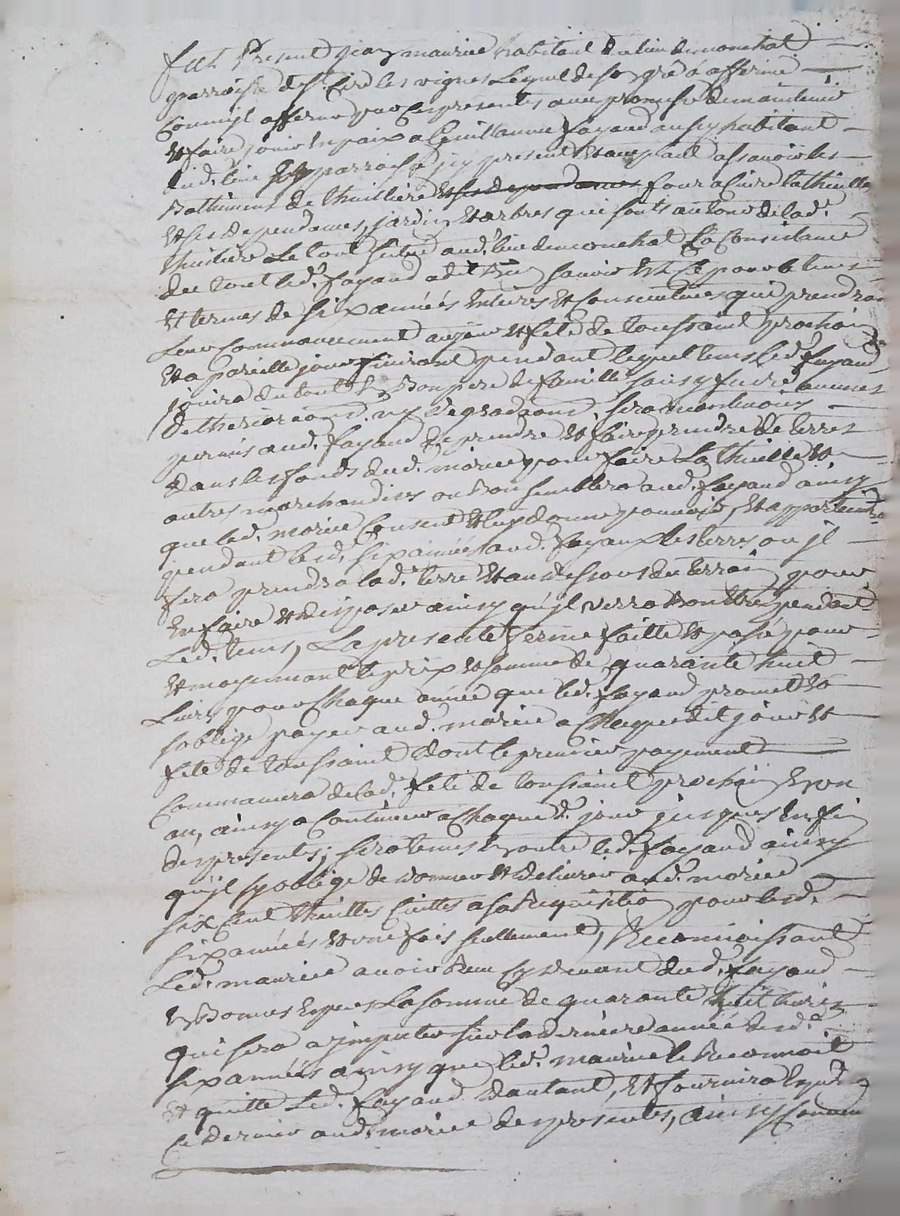 fut Present jean maurice habitant du lieu de monchal
parroisse de St. Cird les vignes Lequel de so gré a affermé
Comme jl afferme par ces presentes avec promesse de maintenir
Et faire jouir en paix a Guillaume fayaud aussy habitant
dud. lieu Et parroisse, jcy present Et acceptant assavoir les
Bathiment de thuilliere Et ses dependances four a cuire la thuille
Et ses dependances, jardin Et arbres qui sonts autour de lad.e
thuiliere Le tout scitué aud. lieu de monchal La Consistance
du tout led. fayaud a dit Bien savoir Et Ce pour le tems
Et termes de six années Entieres Et Consecutives qui prendra
Leur Commancement au jour Et fete de toussaint prochain
Et a pareille jour finiront pendant lequel tems led. fayaud
jouira du tout En Bon pere de famille sans y faire aucunes
deterioraons. ny degradaons. sera neanmoins
permis aud. fayaud de prendre Et faire prendre de terres
dans les fonds dud. morice pour faire La thuille Et
autres marchandises ou Bon semblera aud. fayaud ainsy
que led. morice Consent Et luy donne pouvoir, Et appartiendra
pendant lesd. six années aud. fayaux les terres ou jl
fera prendre lad. terre Et au dessous du terrain pour
En faire Et disposer ainsy qu'jl verra Bon Etre pendant
Led. tems, La presente ferme faitte Et passé pour
Et moyennant le prix Et somme de quarante huit
Livres pour Chaque année que led. fayaud promet Et
s'oblige payer aud. morice a Chaque dit jour Et
fete de toussaint dont le premier payement
Commancera de lad.e fete de toussaint prochain En un
an, ainsy a Continuer a Chaque d. jour jusques En fin
des presentes, sera tenus En outre led. fayaud ainsy
qu'jl s'y oblige de donner Et delivrer aud. morice
six Cent thuilles Cuittes a sa Requisition pour lesd.
six années Et une fois seullement, Reconnoissant
Led. maurice avoir Reçu Cy devant dud. fayaud
En Bonnes Especes La somme de quarante huit livres
qui sera a jmputer sur la derniere année desd.
six années ainsy que led. maurice le Reconnoit
Et quitte Led. fayaud d'autant, Et fournira
Ce dernier aud. morice des presentes, ainsy Convenu